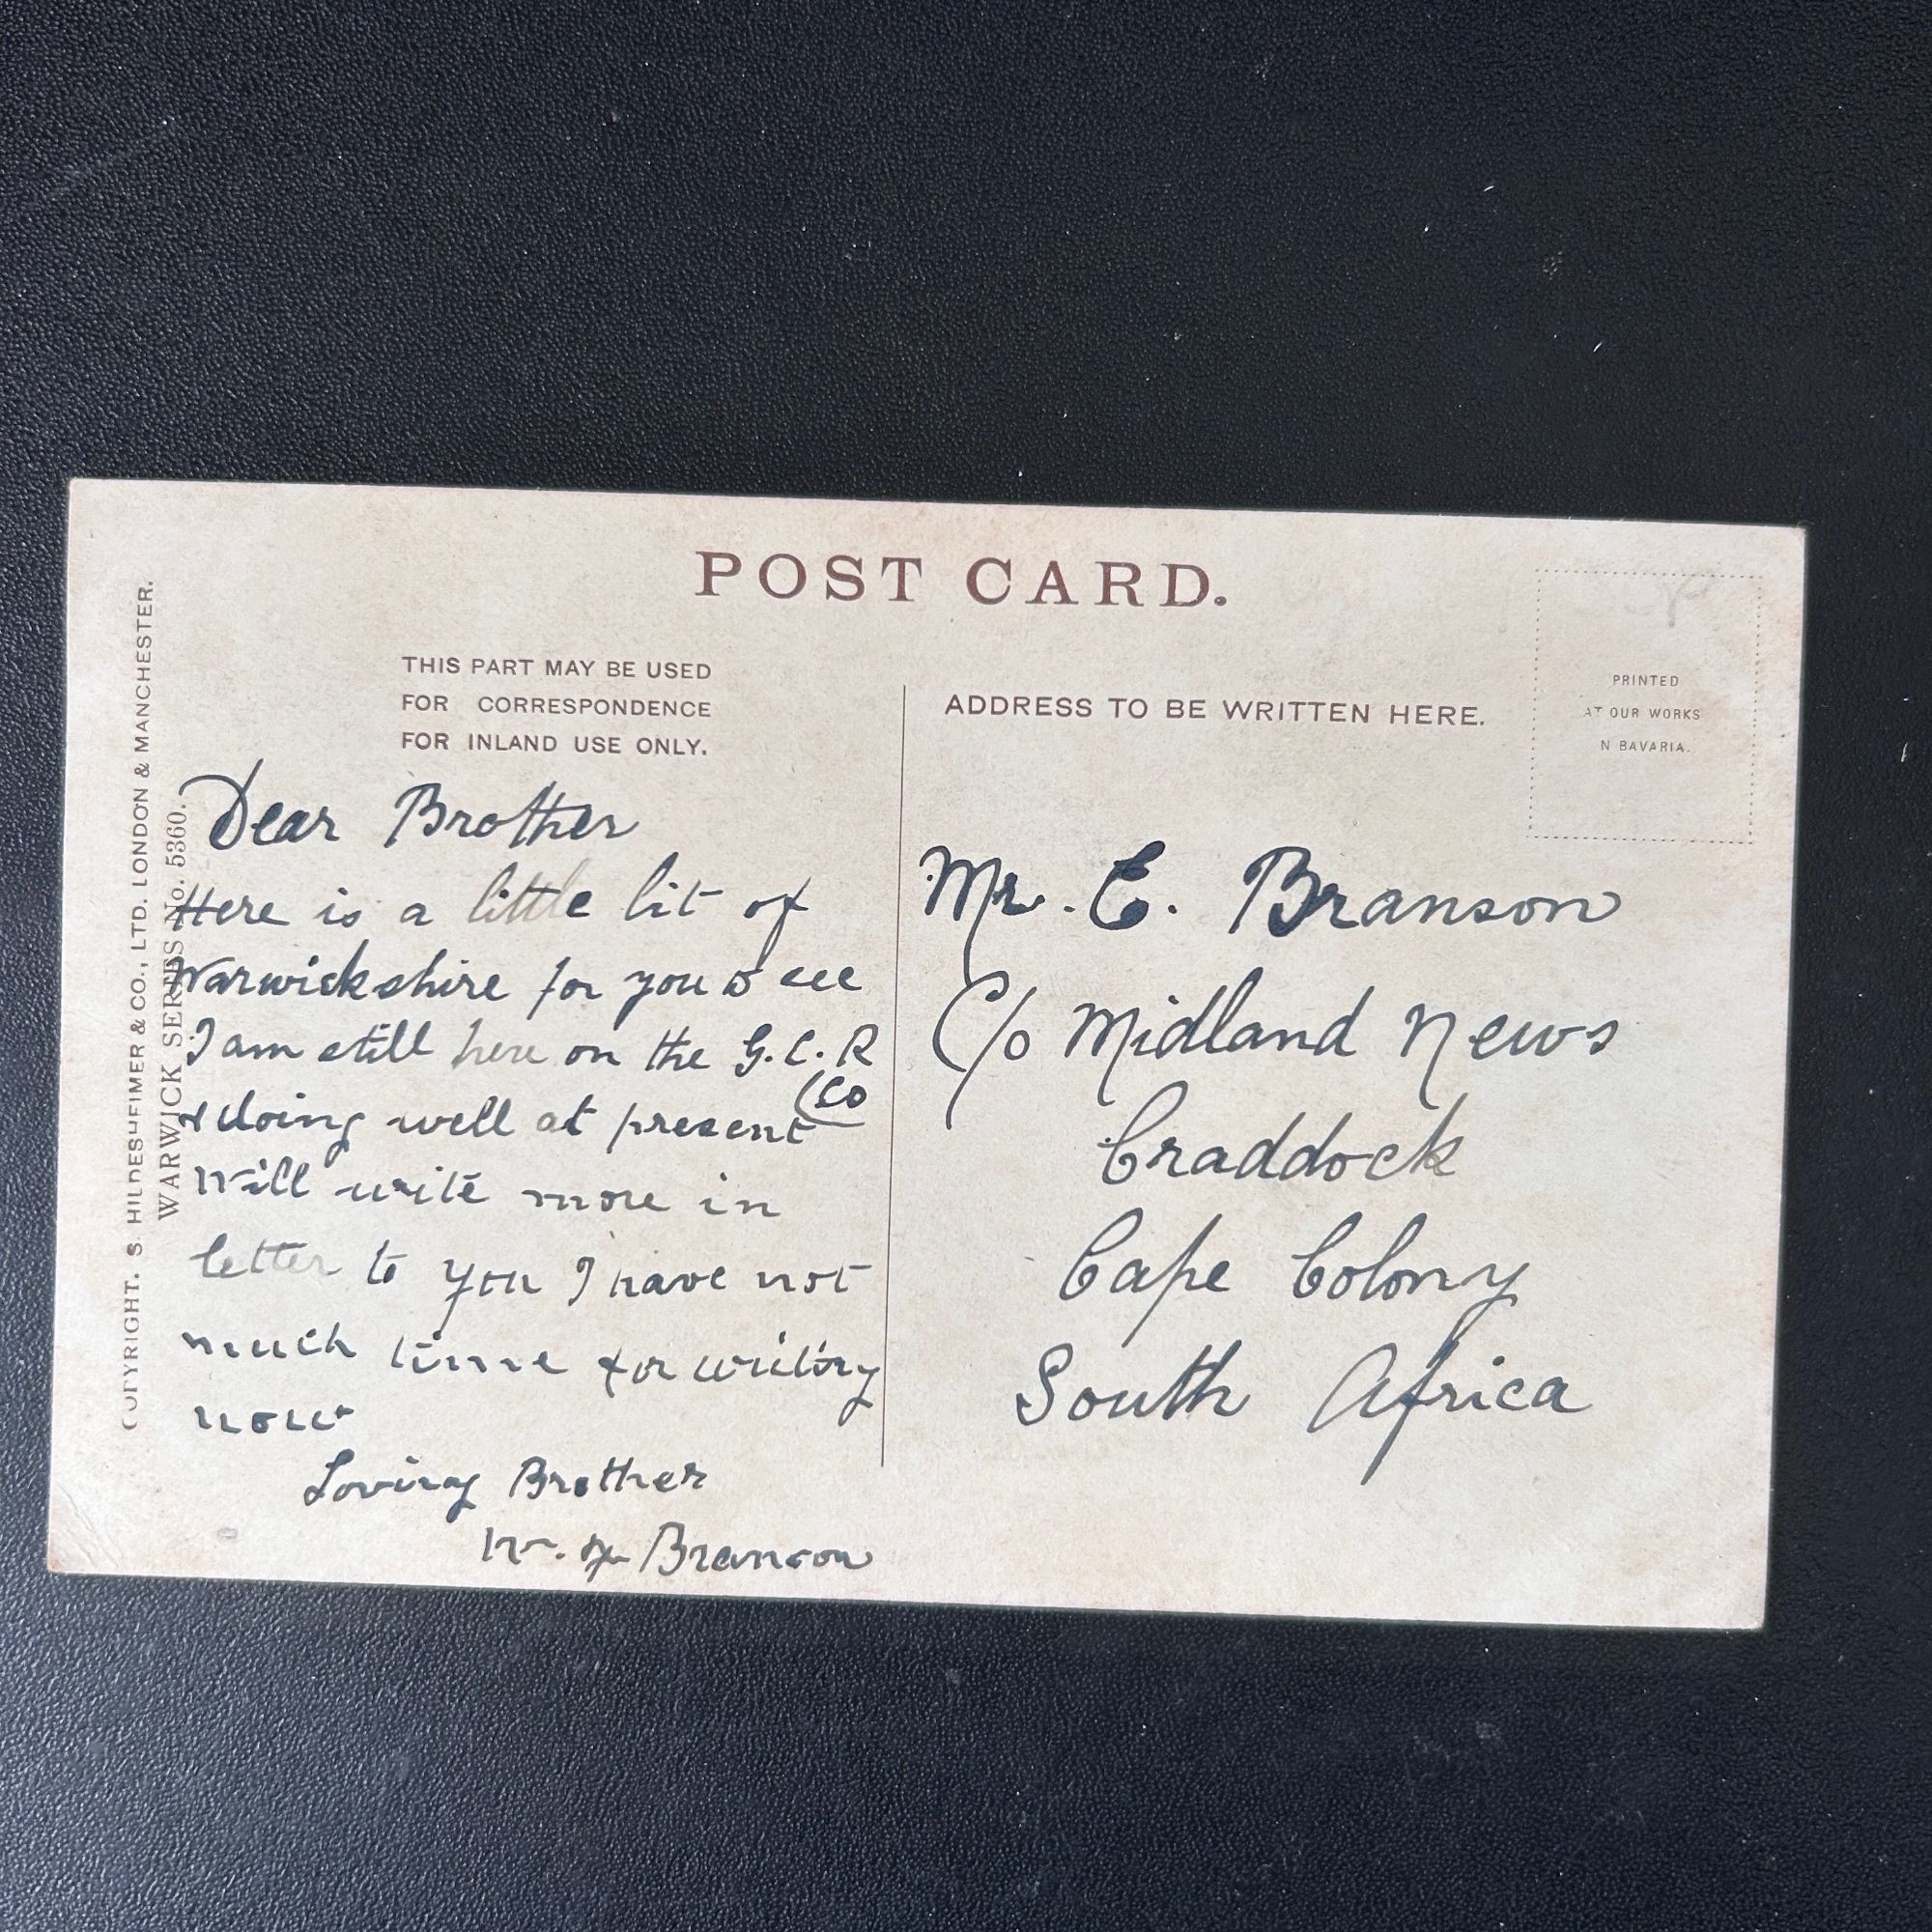 POST CARD.
THIS PART MAY BE USED
FOR CORRESPONDENCE
FOR INLAND USE ONLY.
ADDRESS TO BE WRITTEN HERE.
PRINTED
AT OUR WORKS
N BAVARIA.
COPYRIGHT. S. HILDESHEIMER & CO., LTD. LONDON & MANCHESTER.
WARWICK SERIES No. 5360.
Dear Brother
Here is a little bit of
Warwickshire for you to see
I am still here on the G.C.R
(Co
& doing well at present
Will write more in
letter to you I have not
much time for writing
now
Loving Brother
W. Branson
Mr. E. Branson
C/o Midland News
Craddock
Cape Colony
South Africa